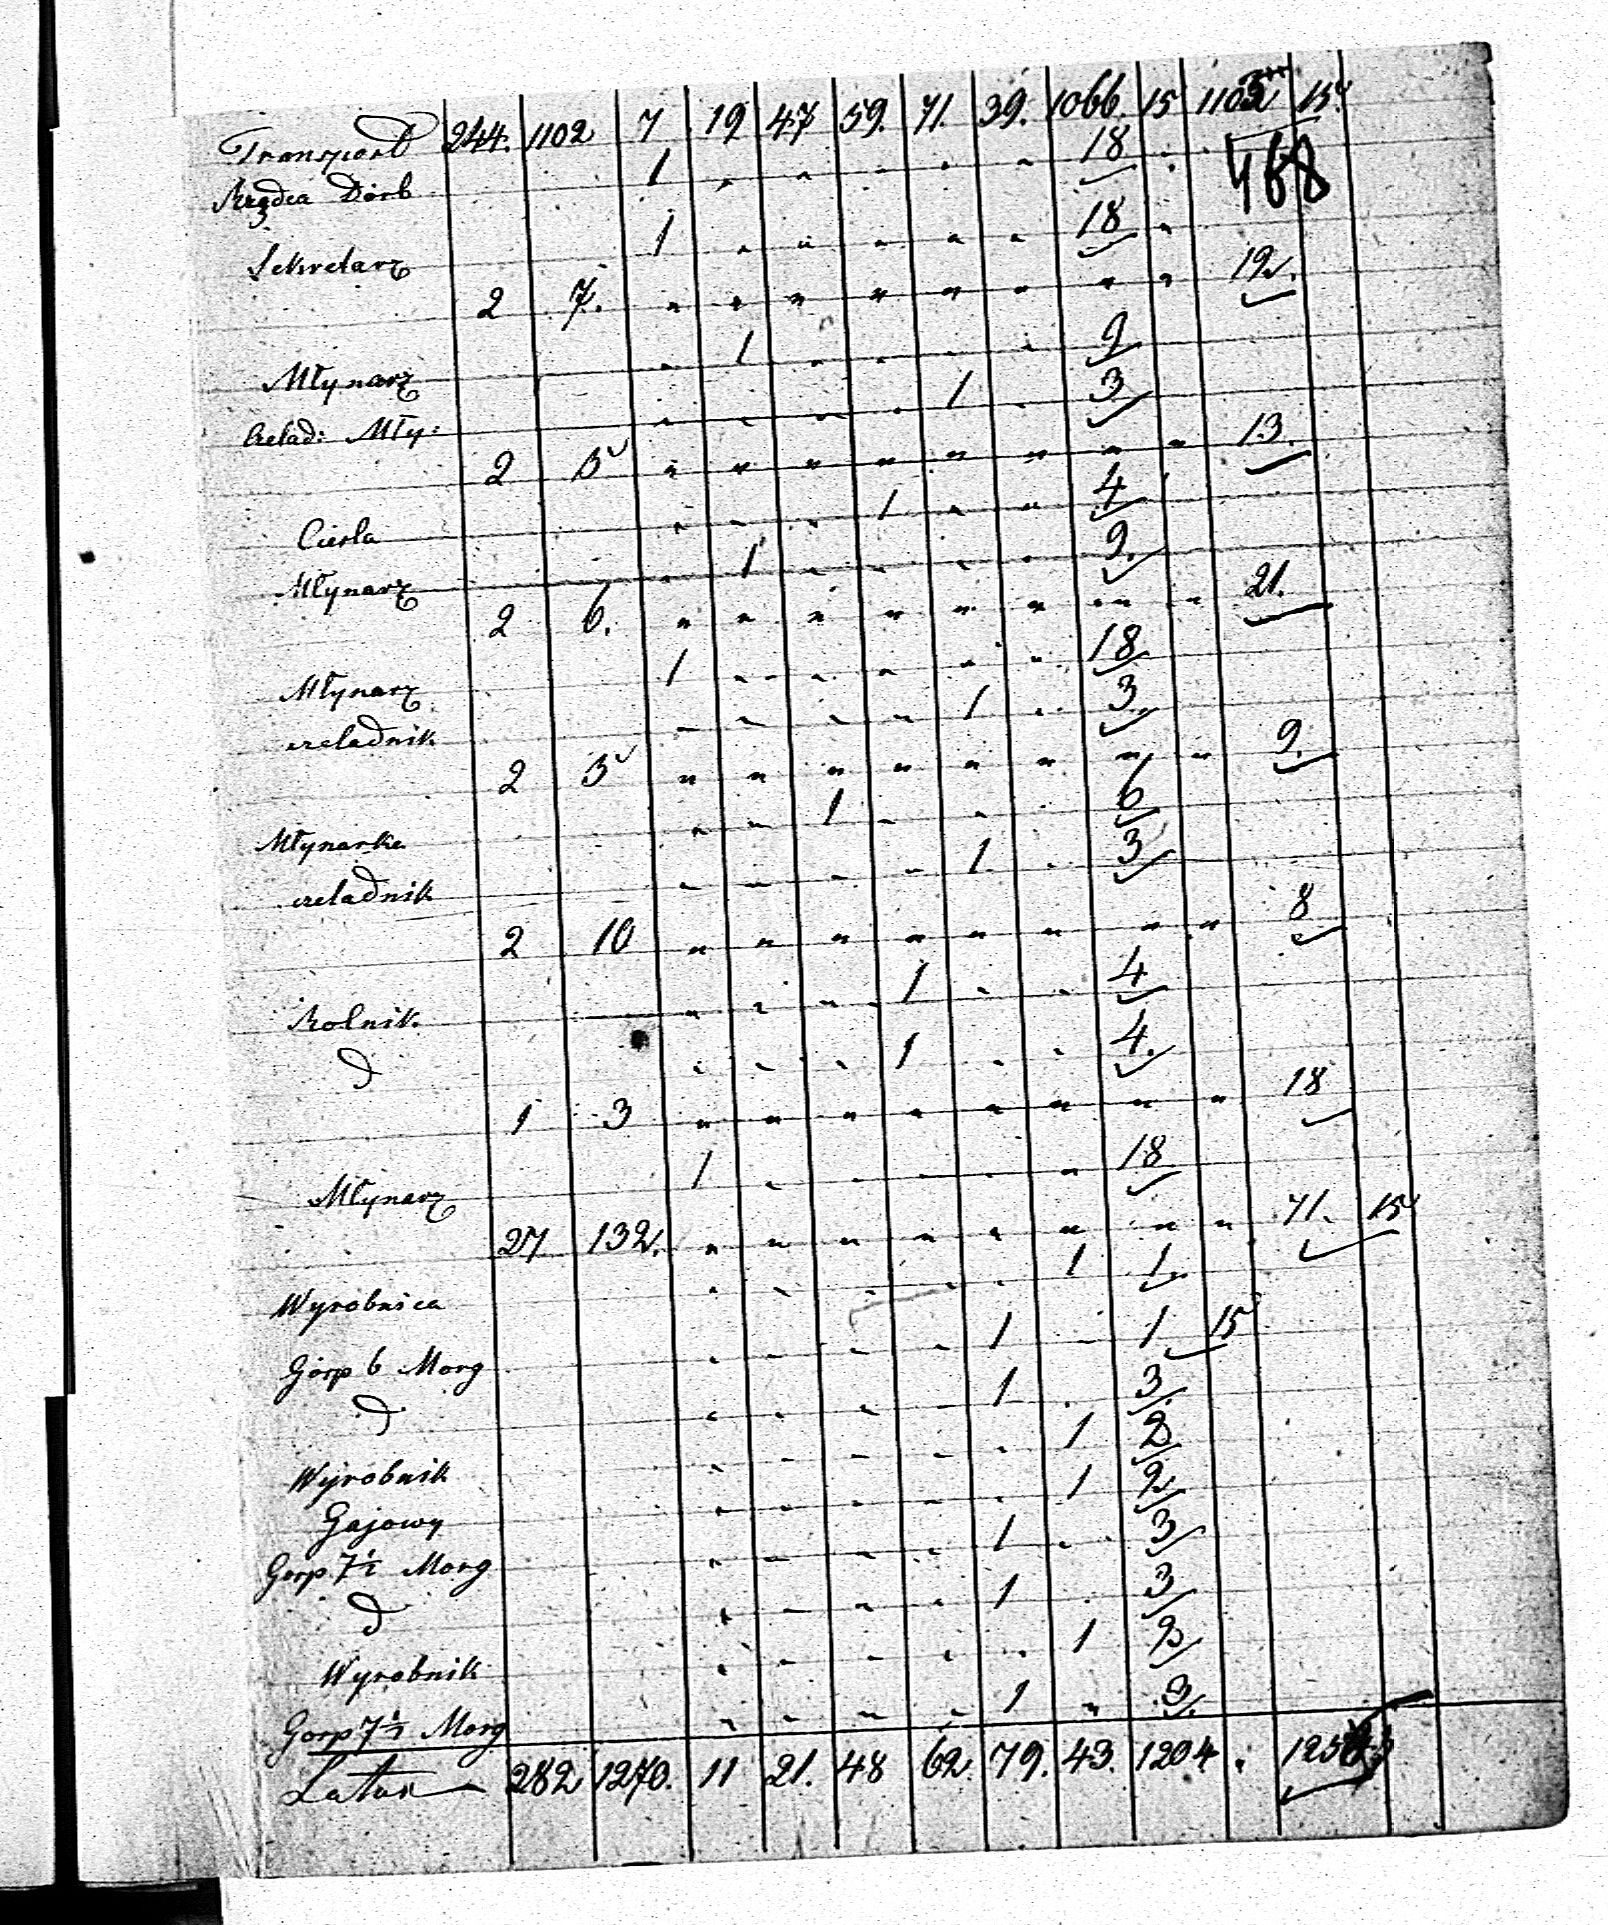 Transport 244. 1102 7 19 47 59. 71. 39. 1066. 15 1103 15
Rządca Dörb 1 „ „ „ „ „ 18 „ 468
Sekretarz 1 „ „ „ „ „ 18 „
2 7. „ „ „ „ „ „ „ „ 12.
Młynarz „ 1 „ „ „ „ 9
Czelad: Mły: „ „ „ „ 1 „ 3
2 5 „ „ „ „ „ „ „ „ 13.
Cieśla „ „ „ 1 „ „ 4
Młynarz „ 1 „ „ „ „ 9.
2 6. „ „ „ „ „ „ „ „ 21.
Młynarz 1 „ „ „ „ „ 18
czeladnik „ „ „ „ 1 „ 3.
2 5 „ „ „ „ „ „ „ „ 9.
Młynarka „ „ 1 „ „ „ 6
czeladnik „ „ „ „ 1 „ 3
2 10 „ „ „ „ „ „ „ „ 8
Rolnik. „ „ „ 1 „ „ 4
d „ „ „ 1 „ „ 4.
1 3 „ „ „ „ „ „ „ „ 18
Młynarz 1 „ „ „ „ „ 18
27 132. „ „ „ „ „ „ „ „ 71. 15
Wyrobnica „ „ „ „ „ 1 1.
Gosp 6 Morg „ „ „ „ 1 „ 1 15
d „ „ „ „ 1 „ 3.
Wyrobnik „ „ „ „ „ 1 2
Gajowy „ „ „ „ „ 1 2
Gosp 7½ Morg „ „ „ „ 1 „ 3
d „ „ „ „ 1 „ 3
Wyrobnik „ „ „ „ „ 1 2
Gosp 7½ Morg „ „ „ „ 1 „ 3.
Latus 282 1270. 11 21. 48 62 79. 43. 1204 „